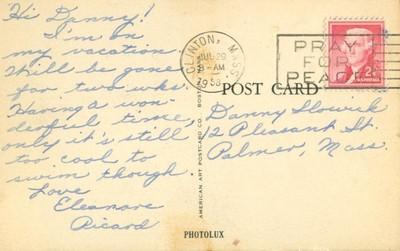 Hi Danny!
I'm on
my vacation.
Will be gone
for two wks.
Having a won-
derful time,
only it's still
too cool to
swim though.
Love
Eleanore
Ricard
CLINTON, MASS.
JUL 29
AM
1958
PRAY
FOR
PEACE
2¢
POST CARD
Danny Slowick
12 Pleasant St.
Palmer, Mass.
AMERICAN ART POSTCARD CO. BOSTON
PHOTOLUX